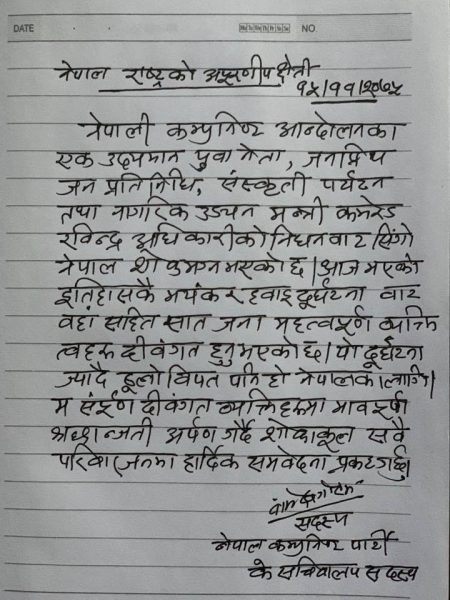 DATE NO.
नेपाल राष्ट्रको अपूरणीय क्षेती
१५/११/२०७५
नेपाली कम्युनिष्ट आन्दोलनका
एक उदयमान युवा नेता, जनप्रिय
जन प्रतिनिधि, संस्कृती पर्यटन
तथा नागरिक उड्यन मन्त्री कमरेड
रविन्द्र अधिकारीको निधनवाट सिंगो
नेपाल शोकमग्न भएको छ। आज भएको
इतिहासकै भयंकर हवाइ दूर्घटना वाट
वहाँ सहित सात जना महत्वपूर्ण व्यक्ति
त्वहरू दीवंगत हुनु भएको छ। यो दूर्घटना
ज्यादै ठूलो विपत पनि हो नेपालका लागि।
म संपूर्ण दीवंगत व्यक्तिहरूमा भावपूर्ण
श्रध्दान्जली अर्पण गर्दै शोकाकूल सवै
परिवारजनमा हार्दिक समवेदना प्रकट गर्छु।
सदस्य
नेपाल कम्युनिष्ट पार्टी
के सचिवालय सदस्य